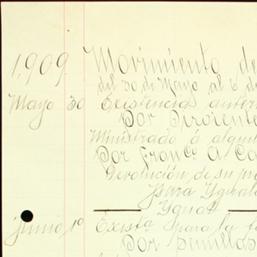 1,909 Movimiento de
del 30 de Mayo al 6 d
Mayo 30 Existencia anter
Por Siroiente
Ministrado á alqui
Por Franco A Ca
Devolución de su pr
para Yguala
Yguat
Junio 1o Existª para la f
Por semillas